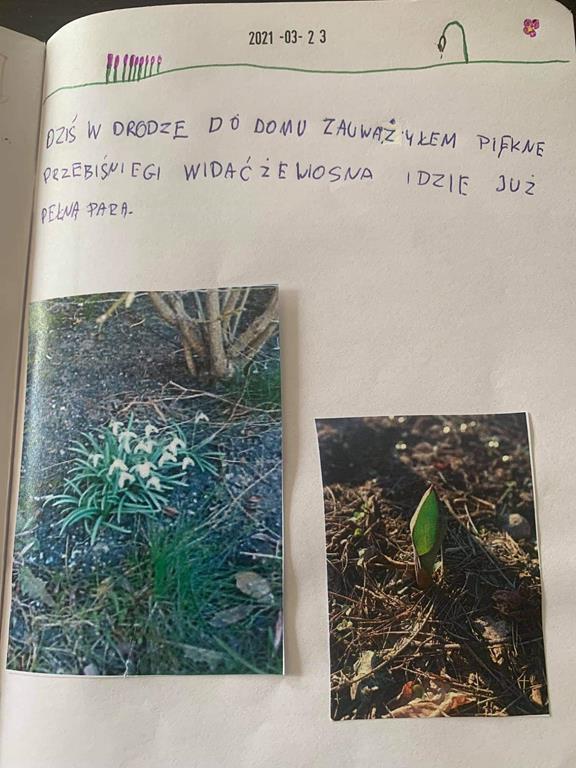 2021 -03- 23
DZIŚ W DRODZE DO DOMU ZAUWAŻYŁEM PIĘKNE
PRZEBIŚNIEGI WIDAĆ ŻE WIOSNA IDZIE JUŻ
PEŁNA PARA.